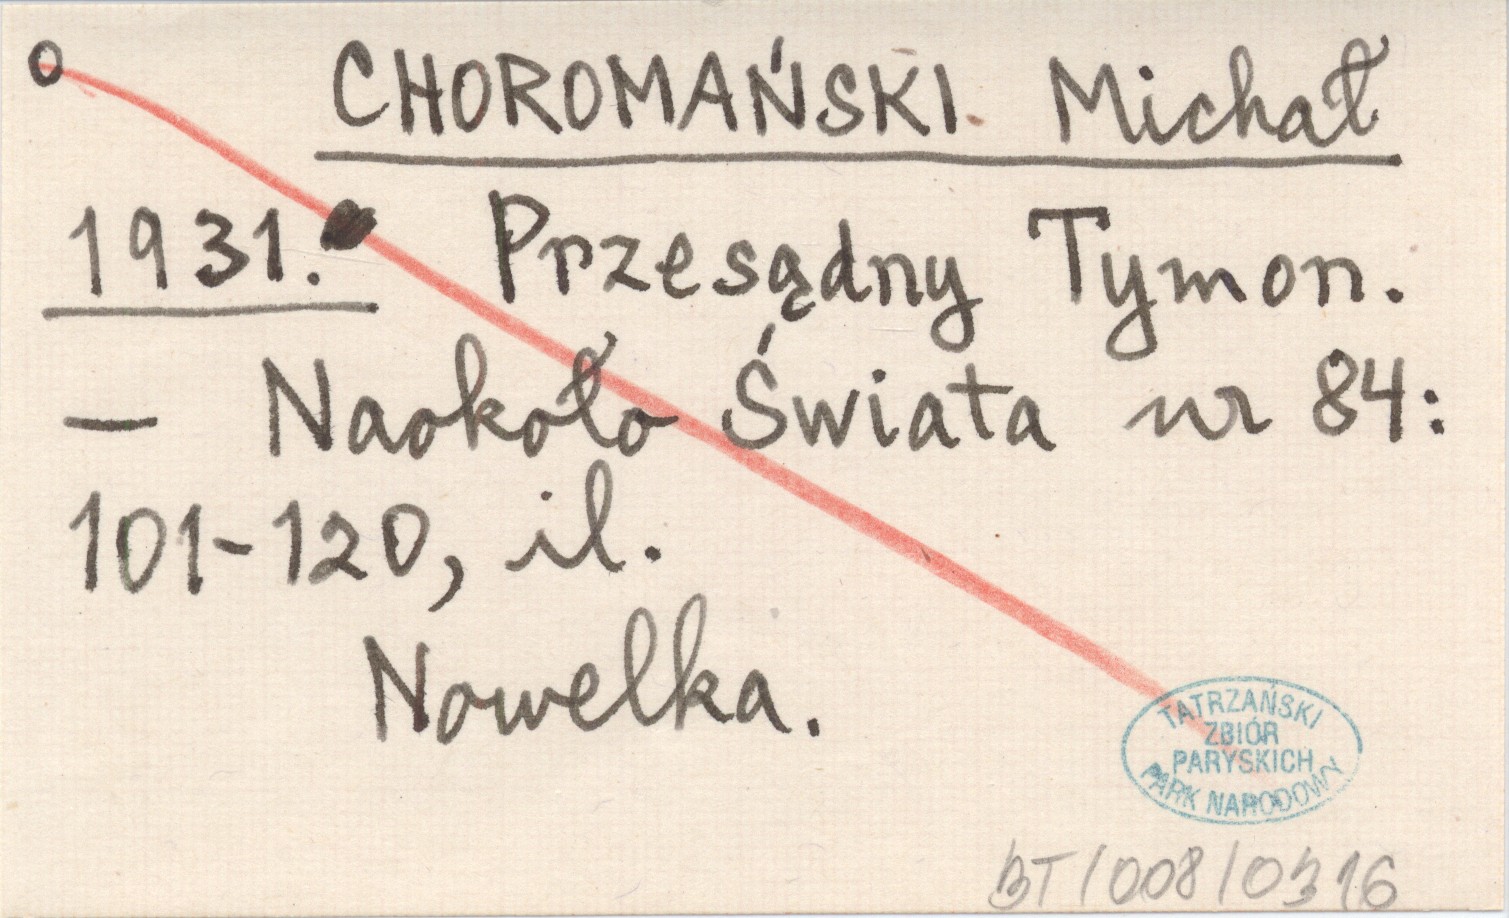 CHOROMAŃSKI Michał
1931. Przesądny Tymon.
— Naokoło Świata nr 84:
101-120, il.
Nowelka.
TATRZAŃSKI
ZBIÓR
PARYSKICH
PARK NARODOWY
BT/008/0316